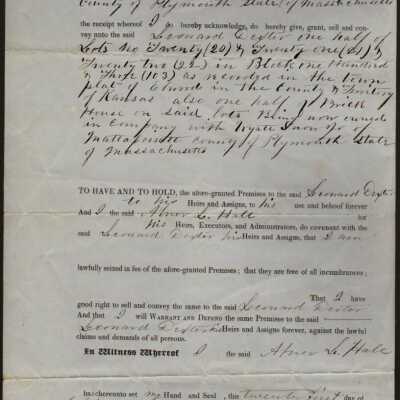 County of Plymouth State of Massachusetts
the receipt whereof I do hereby acknowledge, do hereby give, grant, sell and con-
vey unto the said Leonard Dexter one half of
Lots No Twenty (20) & Twenty one (21) &
Twenty two (22) in Block one Hundred
& Three (103) as recorded in the town
plat of in the County & Territory
of Kansas also one half of Brick
House on said lots being now owned
in Company with of
Mattapoisett County of Plymouth State
of Massachusetts
TO HAVE AND TO HOLD, the afore-granted Premises to the said Leonard Dexter
to his Heirs and Assigns, to his use and behoof forever
And I the said Abner L. Hall for
his Heirs, Executors, and Administrators, do covenant with the
said Leonard Dexter his Heirs and Assigns, that I am
lawfully seized in fee of the afore-granted Premises; that they are free of all incumbrances;
That I have
good right to sell and convey the same to the said Leonard Dexter
And that I will WARRANT AND DEFEND the same Premises to the said
Leonard Dexter his Heirs and Assigns forever, against the lawful
claims and demands of all persons.
In Witness Whereof I the said Abner L. Hall
ha hereunto set my Hand and Seal, this twenty first day of